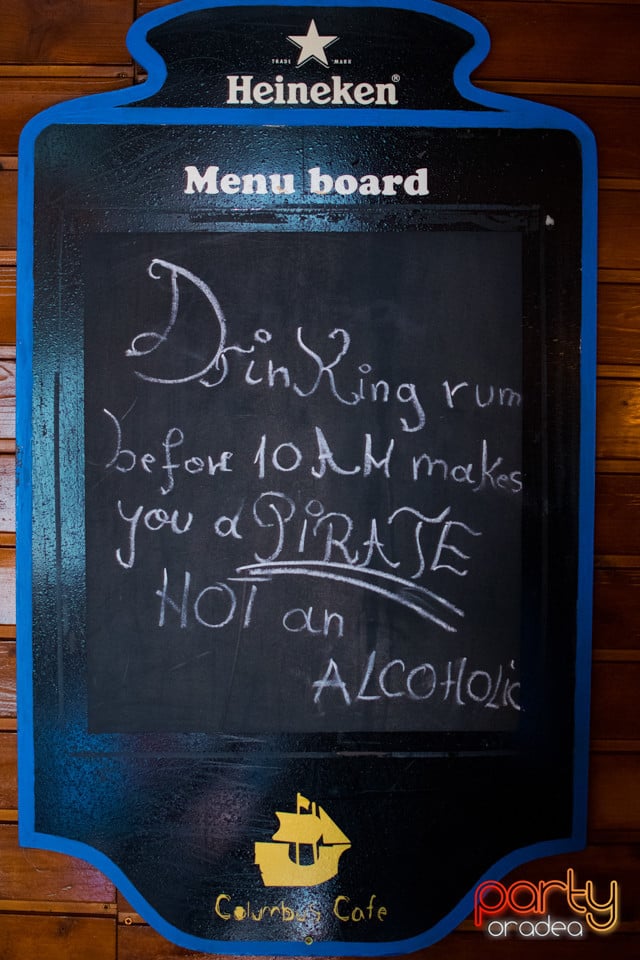 TRADE MARK
Heineken®
Menu board
DrinKing rum
before 10 AM makes
you a PiRATE
NOT an
ALCOHOLic
Columbus Cafe
party
oradea